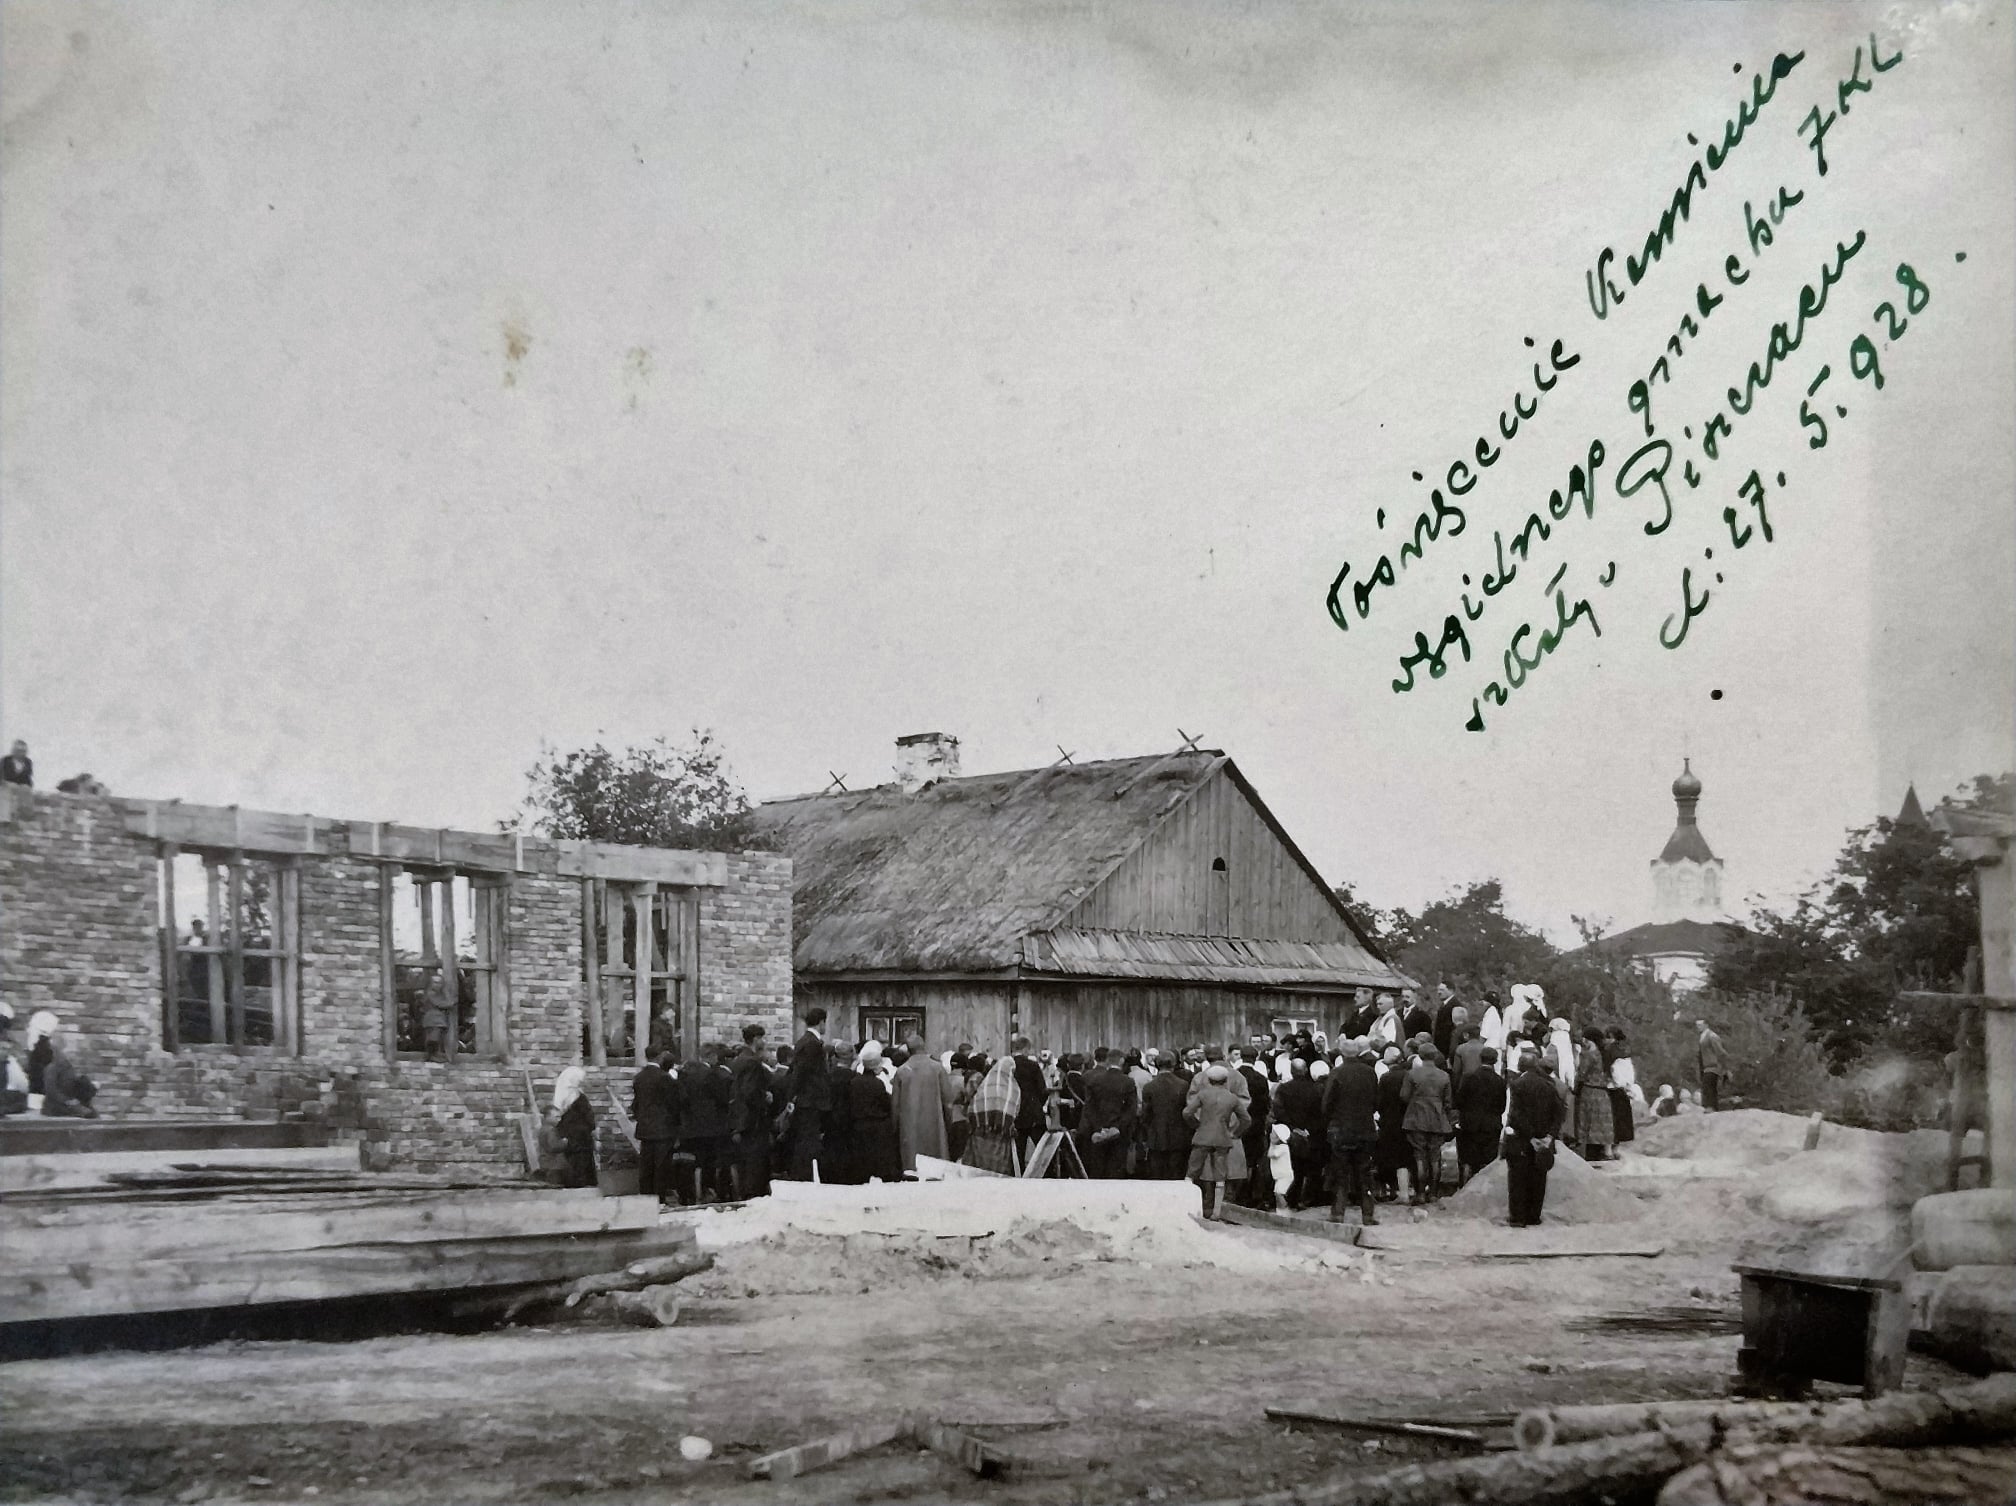 Poświęcenie Kamienia
węgielnego gmachu 7 KL
szkoły w Piszczacu
d: 27. 5. 928.